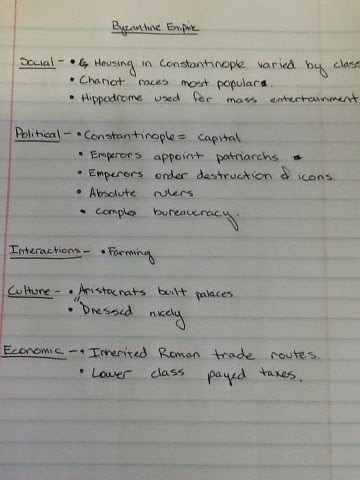 Byzantine Empire
Social - • Housing in Constantinople varied by class
• Chariot races most popular.
• Hippodrome used for mass entertainment
Political - • Constantinople = capital
• Emperors appoint patriarchs
• Emperors order destruction of icons.
• Absolute rulers
• Complex bureaucracy.
Interactions - • Farming
Culture - • Aristocrats built palaces
• Dressed nicely
Economic - • Inherited Roman trade routes.
• Lower class payed taxes.